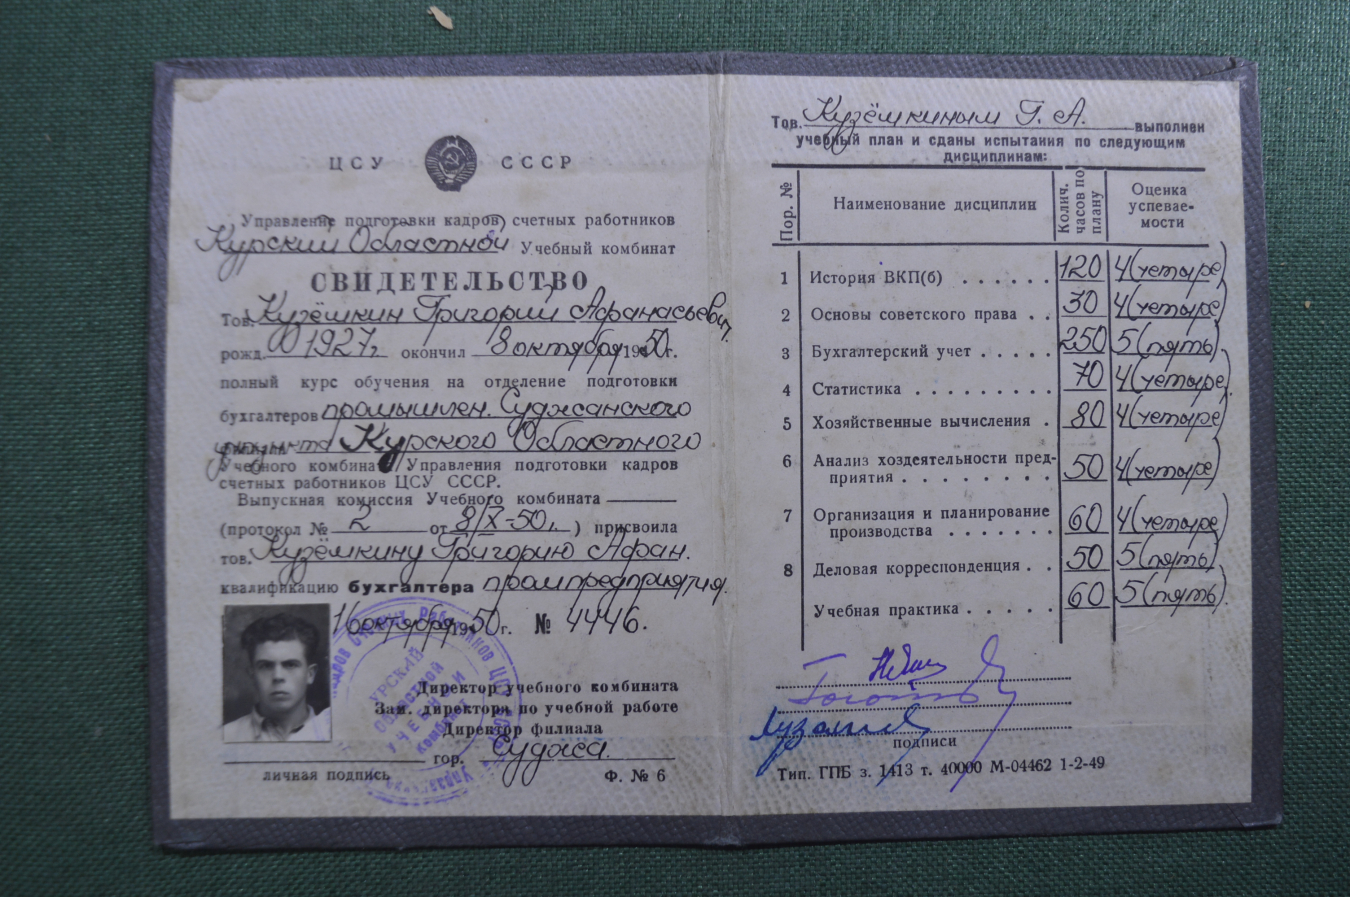 ЦСУ СССР
Управление подготовки кадров счетных работников
Курский Областной Учебный комбинат
СВИДЕТЕЛЬСТВО
Тов. Кузёмкин Григорий Афанасьевич
рожд. в 1927, окончил 8 октября 1950г.
полный курс обучения на отделение подготовки
бухгалтеров промышлен. Суджанского
Курского Областного
Учебного комбината Управления подготовки кадров
счетных работников ЦСУ СССР.
Выпускная комиссия Учебного комбината
(протокол № 2 от 8/X-50г.) присвоила
тов. Кузёмкину Григорию Афан.
квалификацию бухгалтера промпредприятия.
16 октября 1950г. № 4446.
Директор учебного комбината
Зам. директора по учебной работе
Директор филиала
гор. Суджа.
личная подпись Ф. № 6
Тов. Кузёмкиным Г. А. выполнен
учебный план и сданы испытания по следующим
дисциплинам:
Пор. № Наименование дисциплин Колич. часов по плану Оценка успеваемости
1 История ВКП(б) . . . . . . 120 4 (четыре)
2 Основы советского права . . 30 4 (четыре)
3 Бухгалтерский учет . . . . . 250 5 (пять)
4 Статистика . . . . . . . . . 70 4 (четыре)
5 Хозяйственные вычисления . 80 4 (четыре)
6 Анализ хоздеятельности пред-
приятия . . . . . . . . 50 4 (четыре)
7 Организация и планирование
производства . . . . . . 60 4 (четыре)
8 Деловая корреспонденция . . 50 5 (пять)
Учебная практика . . . . . 60 5 (пять)
подписи
Тип. ГПБ з. 1413 т. 40000 М-04462 1-2-49